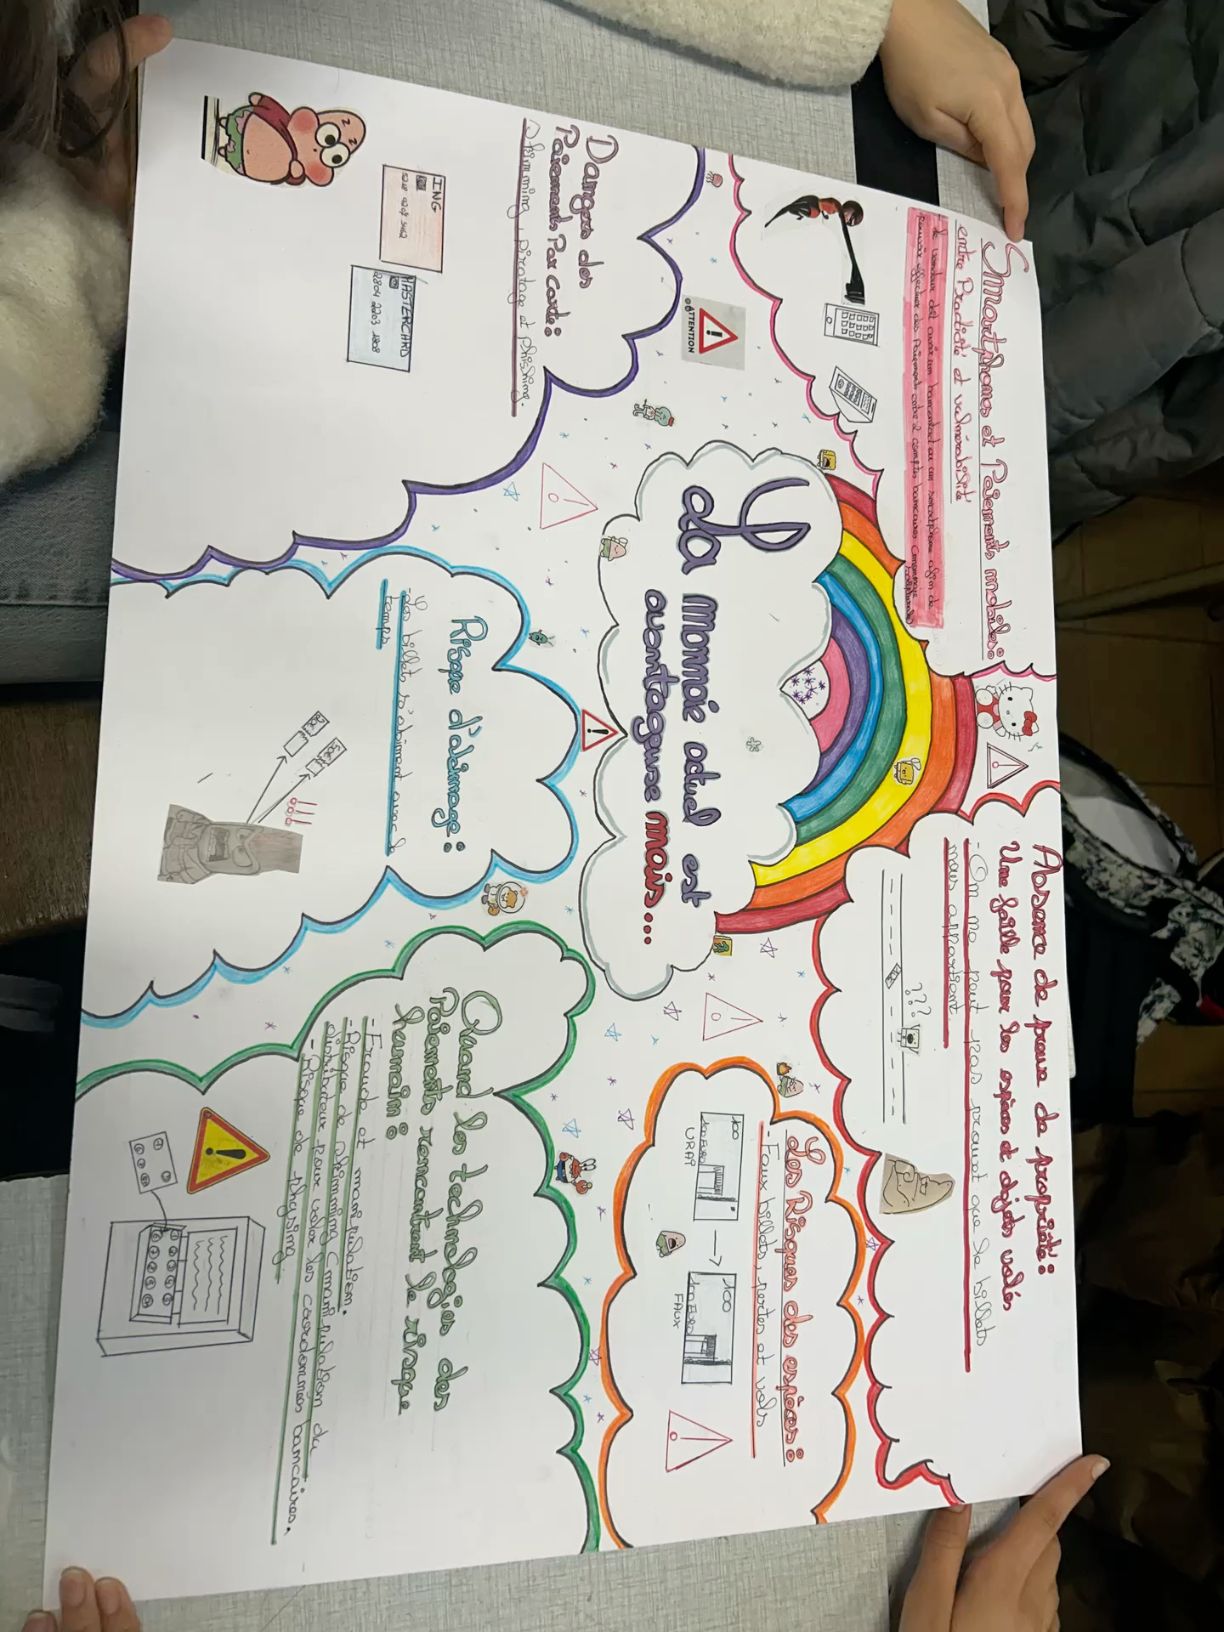 Smartphones et Paiements mobiles :
entre Praticité et vulnérabilité
le vendeur doit avoir un bancontact ou un smartphone afin de
pouvoir effectuer des Paiements entre 2 comptes bancaires
Absence de preuve de propriété :
Une faille pour les espèces et objets volés
- On ne peut pas prouvé que le billets
nous appartient
???
ATTENTION
La monnaie actuel est
avantageuse mais...
Les Risques des espèces :
- Faux billets, pertes et vols
100
100 EURO
VRAI
100
100 EURO
FAUX
Dangers des
Paiements Par Carte :
Skimming, piratage et phishing.
ING
MASTERCARD
2804 2203 1808
Risque d'abimage :
- Les billets s'abiment avec le
temps
!!!
Quand les technologies des
Paiements rencontrent le risque
humain :
- Fraude et manipulation.
- Risque de skimming (manipulation du
distributeur pour voler les coordonnées bancaires.
- Risque de phising